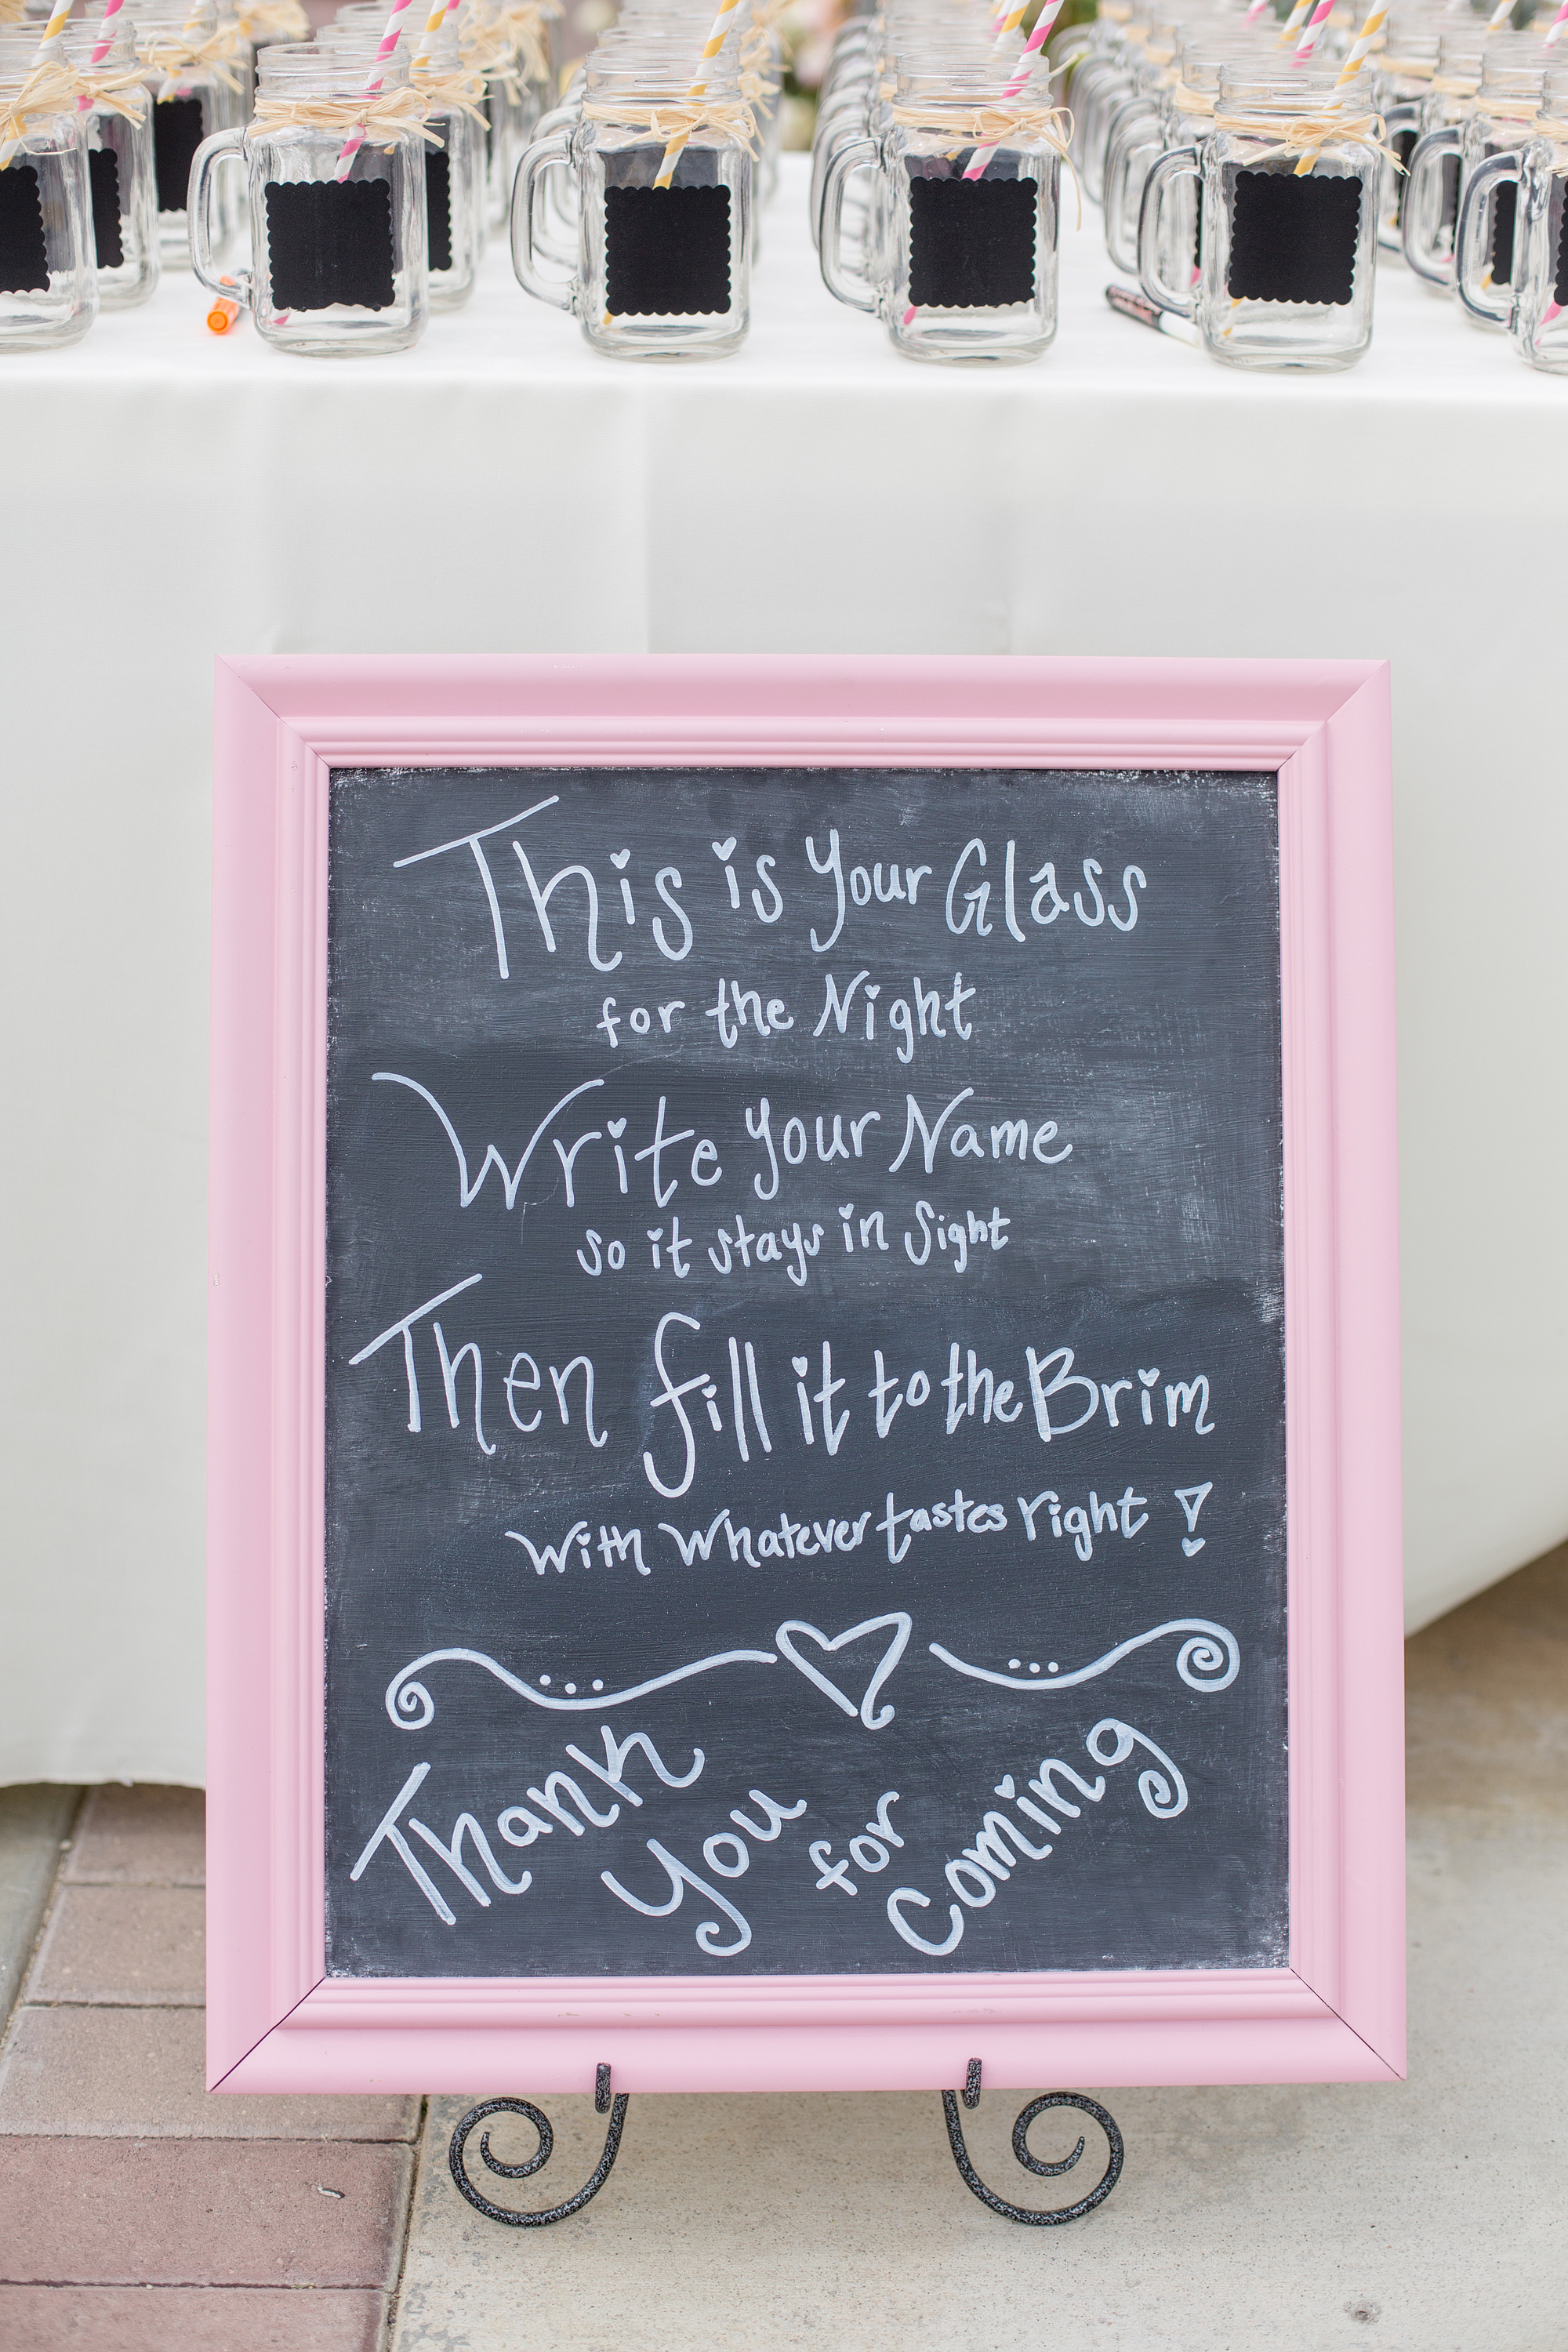 This is your Glass
for the Night
Write your Name
so it stays in Sight
Then fill it to the Brim
with whatever tastes right!
Thank you for Coming